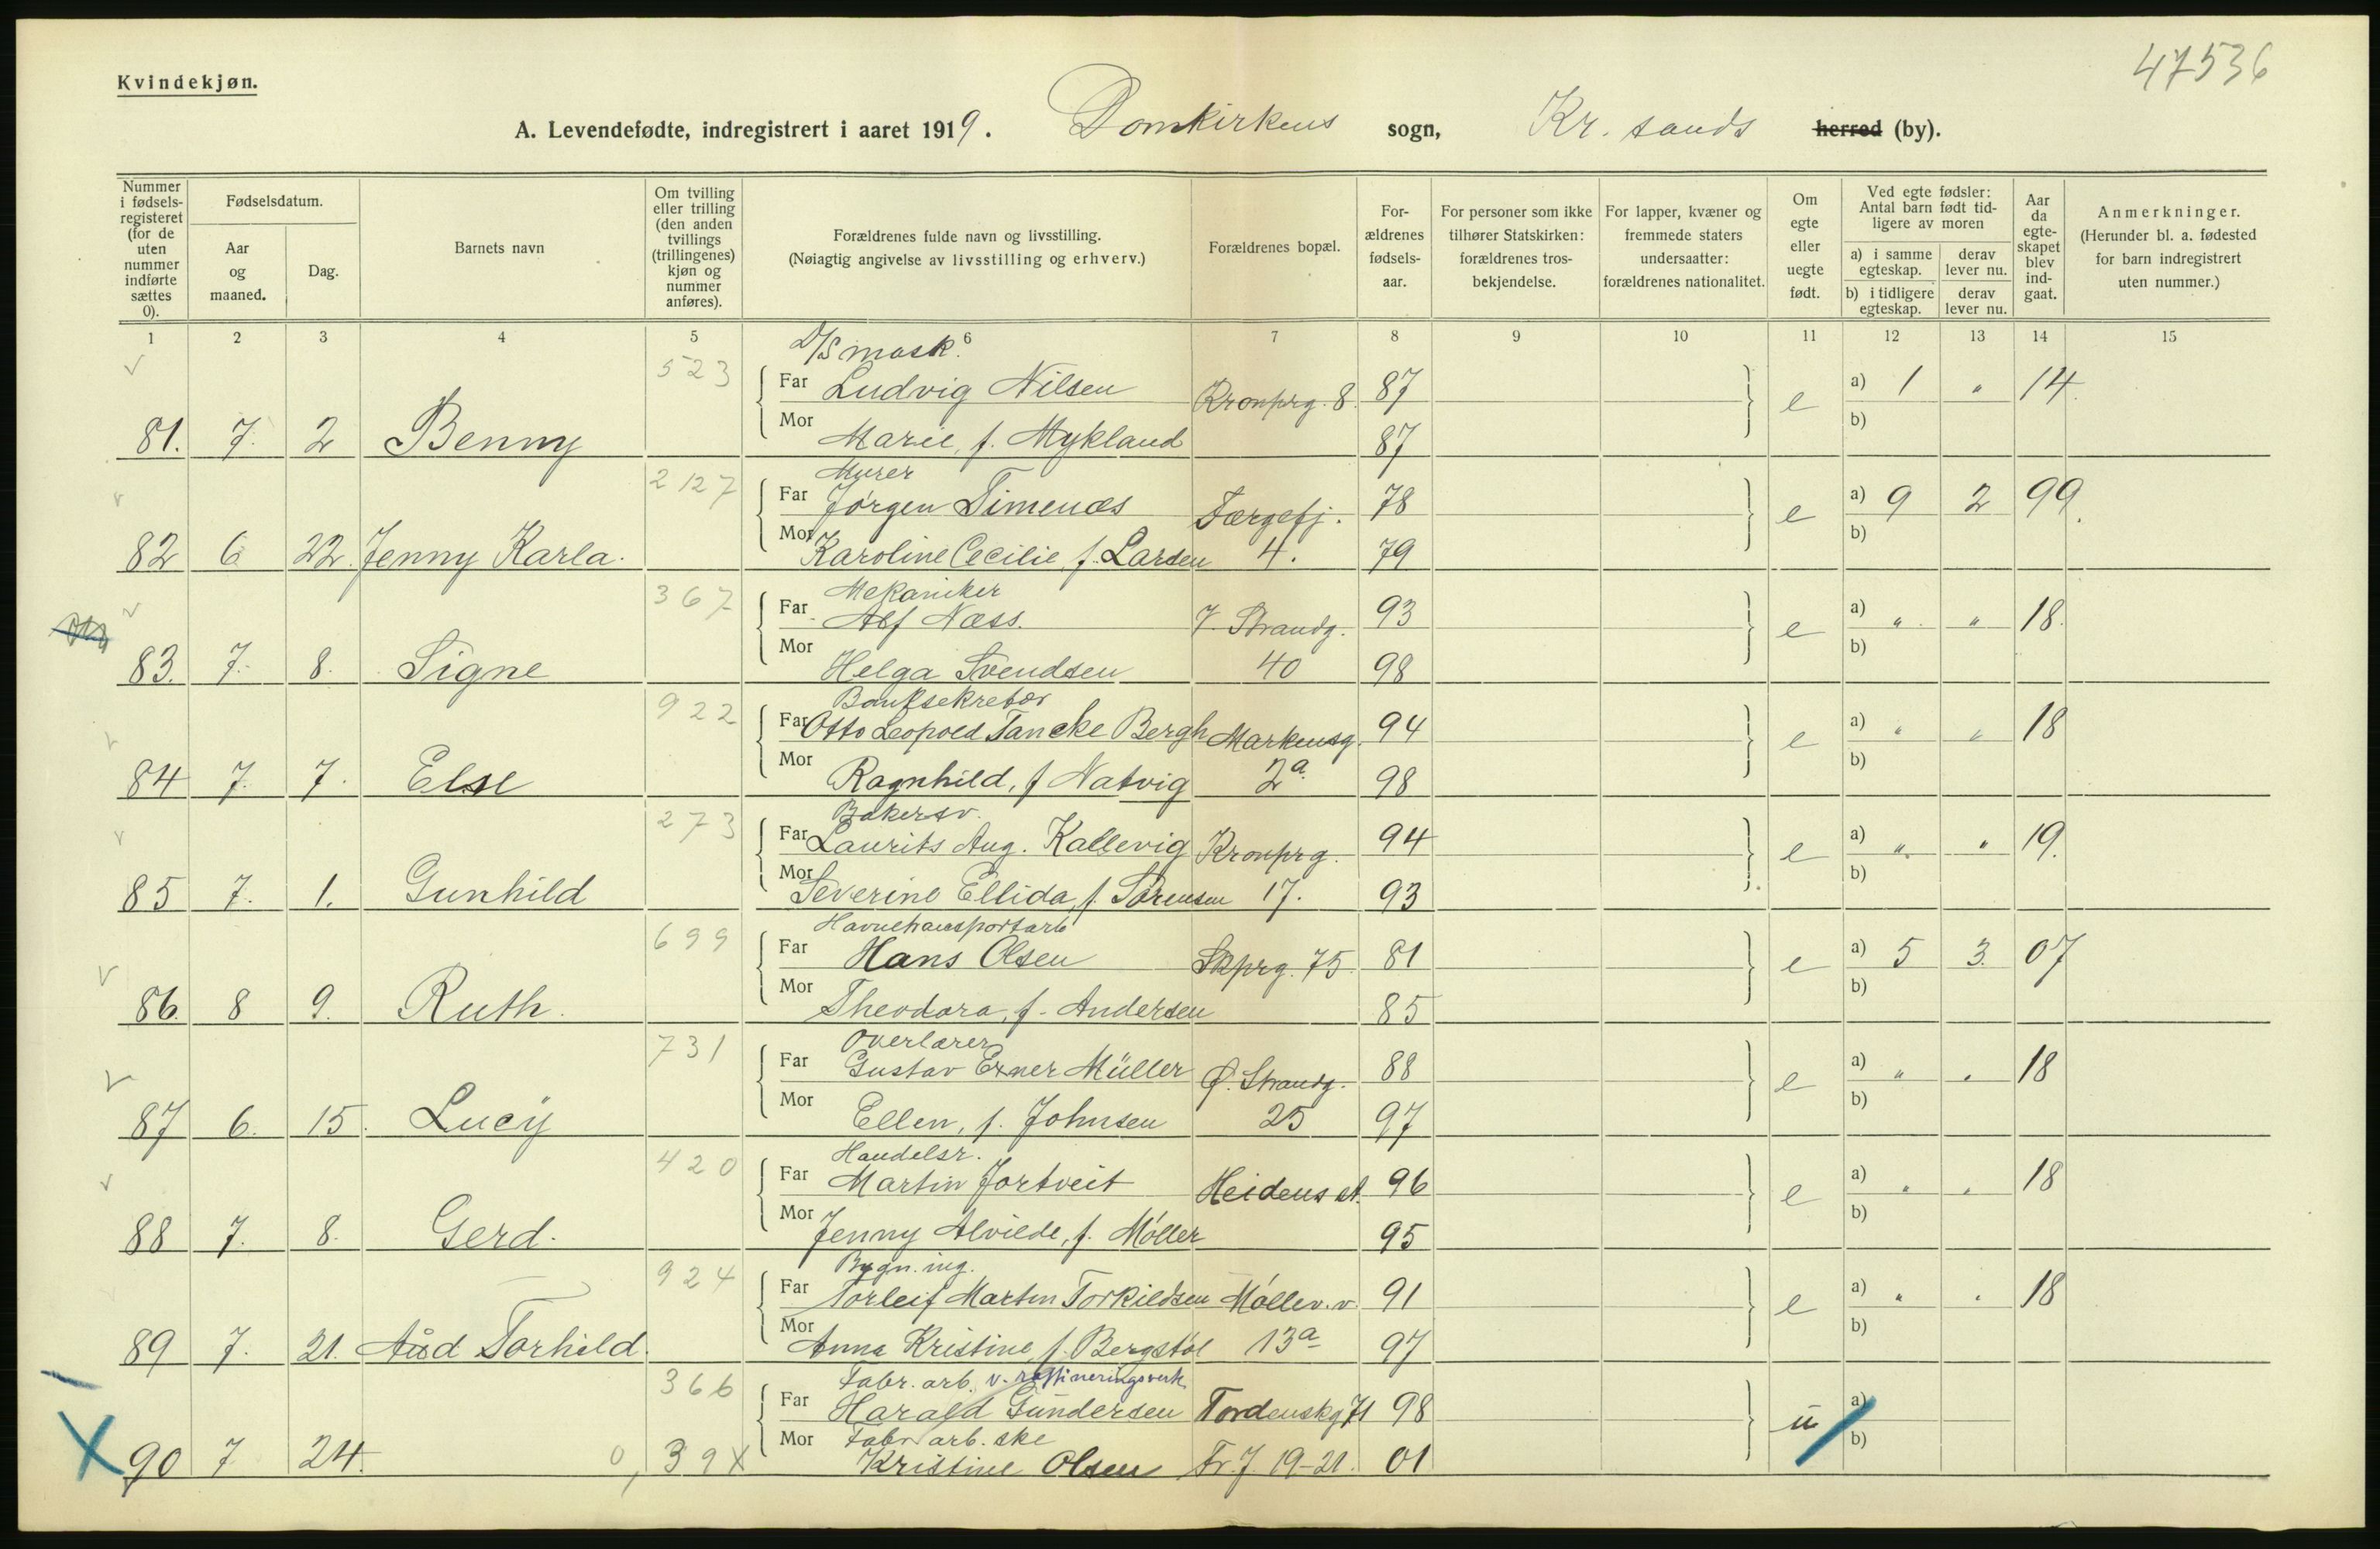 47536
Kvindekjøn.
A. Levendefødte, indregistrert i aaret 1919. Domkirkens sogn, Kr. sands herred (by).
Nummer i fødsels-registeret (for de uten nummer indførte sættes 0).
Fødselsdatum.
Aar og maaned.
Dag.
Barnets navn
Om tvilling eller trilling (den anden tvillings (trillingenes) kjøn og nummer anføres).
Forældrenes fulde navn og livsstilling.
(Nøiagtig angivelse av livsstilling og erhverv.)
Forældrenes bopæl.
For-ældrenes fødsels-aar.
For personer som ikke tilhører Statskirken: forældrenes tros-bekjendelse.
For lapper, kvæner og fremmede staters undersaatter: forældrenes nationalitet.
Om egte eller uegte født.
Ved egte fødsler: Antal barn født tid-ligere av moren
a) i samme egteskap.
derav lever nu.
b) i tidligere egteskap.
derav lever nu.
Aar da egte-skapet blev ind-gaat.
Anmerkninger.
(Herunder bl. a. fødested for barn indregistrert uten nummer.)
1 2 3 4 5 6 7 8 9 10 11 12 13 14 15
523 D/S mask.
Far Ludvig Nilsen Kronprg. 8. 87 e a) 1 " 14.
81. 7. 2 Benny Mor Marie, f. Mykland 87 b)
2127 Murer
Far Jørgen Timenæs Færgefj. 78 e a) 9 2 99.
82 6 22. Jenny Karla. Mor Karoline Cecilie, f. Larsen 4. 79 b)
367 Mekaniker
Far Alf Næss. V. Strandg. 93 e a) " " 18.
83. 7. 8. Signe Mor Helga Svendsen 40 98 b)
922 Banksekretær
Far Otto Leopold Tancke Bergh Markensg. 94 e a) " " 18
84 7. 7. Else Mor Ragnhild, f Natvig 2a. 98 b)
273 Bakersv.
Far Laurits Aug. Kallevig Kronprg. 94 e a) " " 19.
85 7. 1. Gunhild Mor Severine Ellida, f. Sørensen 17. 93 b)
699 Havnetransportarb
Far Hans Olsen Skprg. 75. 81 e a) 5 3. 07
86. 8 9. Ruth. Mor Theodora, f. Andersen 85 b)
731 Overlærer
Far Gustav Exner Müller Ø. Strandg. 88 e a) " " 18
87 6. 15. Lucy Mor Ellen, f. Johnsen 25 97 b)
420 Handelsr.
Far Martin Jortveit Heidens st. 96 e a) " " 18
88 7. 8. Gerd. Mor Jenny Alvilde, f. Møller 95 b)
924 Bygn. ing.
Far Torleif Marten Torkildsen Møllev. v. 91 e a) " " 18
89 7. 21. Aud Torhild. Mor Anna Kristine, f. Bergstøl 13a 97 b)
366 Fabr. arb. v. raffineringsverk
Far Harald Gundersen Tordenskg 71 98 u a)
Fabr arb. ske
X 90 7 24. 0, 39 X Mor Kristine Olsen Fr. J. 19-21. 01 b)